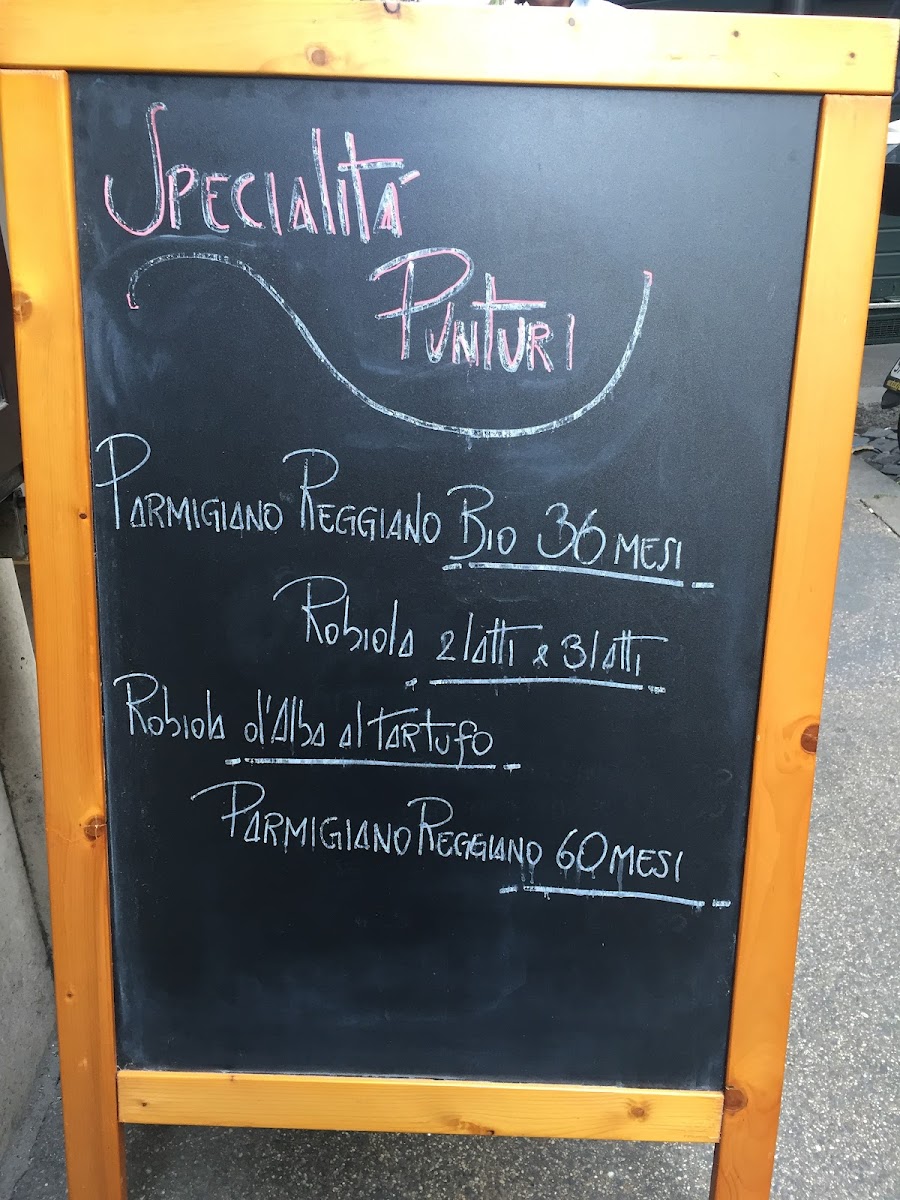 Specialitá
Punturi
Parmigiano Reggiano Bio 36 mesi
Robiola 2 latti e 3 latti
Robiola d'Alba al Tartufo
Parmigiano Reggiano 60 mesi